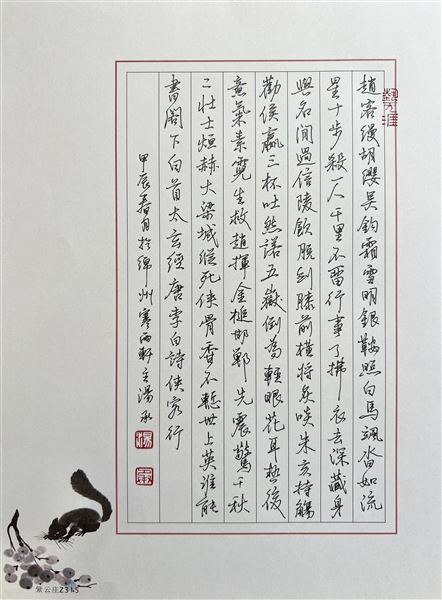 趙客縵胡纓吳鈎霜雪明銀鞍照白馬颯沓如流
星十步殺一人千里不留行事了拂衣去深藏身
與名閒過信陵飲脫劍膝前橫將炙啖朱亥持觴
勸侯嬴三杯吐然諾五嶽倒為輕眼花耳熱後
意氣素霓生救趙揮金槌邯鄲先震驚千秋
二壯士烜赫大梁城縱死俠骨香不慙世上英誰能
書閣下白首太玄經唐李白詩俠客行
甲辰春月於綿州寒雨軒主湯
紫云庄